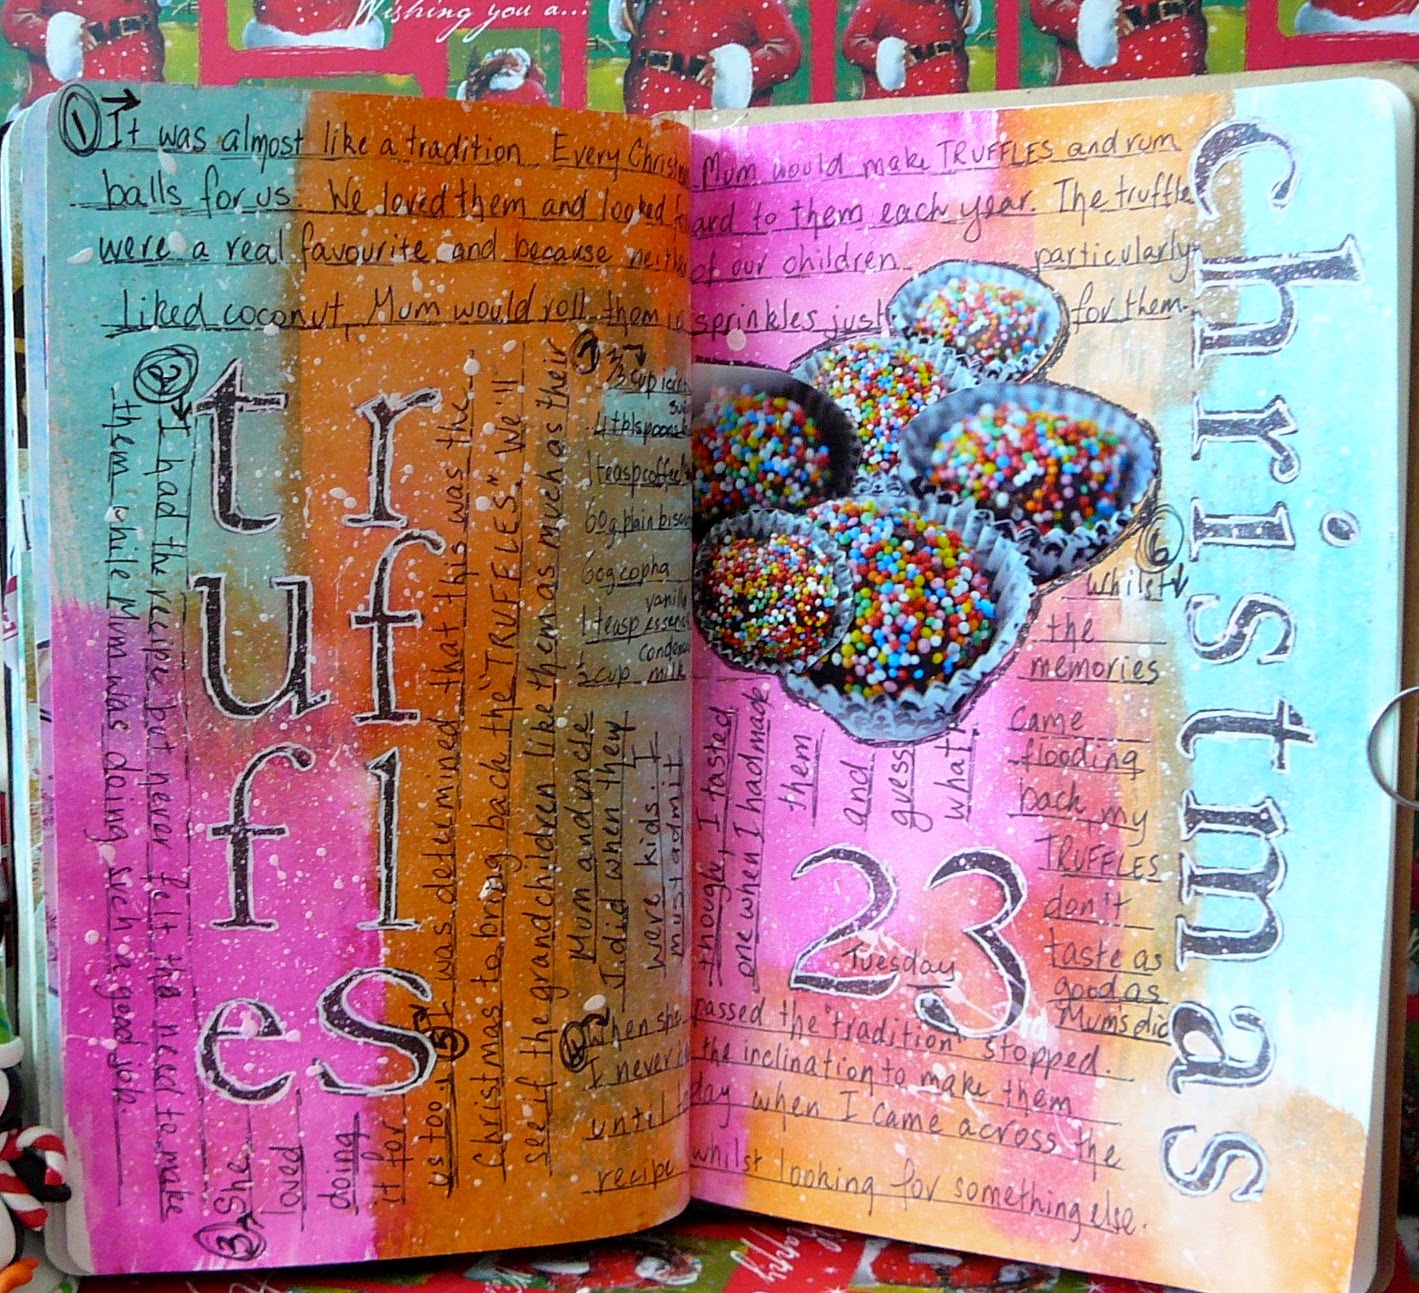 Wishing you a...
1 It was almost like a tradition. Every Mum would make TRUFFLES and rum
balls for us. We loved them and looked to them each year. The truffle
were a real favourite and because of our children particularly
liked coconut, Mum would roll them in sprinkles just for them.
truffles
christmas
2 I had the recipe but never felt the need to make
them while Mum was doing such a good job.
3 She
loved
doing
it for
us too.
4 When she passed the "tradition" stopped.
I never the inclination to make them
until when I came across the
recipe whilst looking for something else.
5 I was determined that this was the
Christmas to bring back the "TRUFFLES". We'll
see if the grandchildren like them as much as their
Mum and uncle
did when they
were kids. I
must admit
though, I tasted
one when I had made
them
and
guess
what?
6
whilst
the
memories
came
flooding
back, my
TRUFFLES
don't
taste as
good as
Mums did
cup
4 tblspoons
1 teasp coffee
60g plain
60g copha
vanilla
1 teasp
½ cup milk
23
Tuesday
Happy